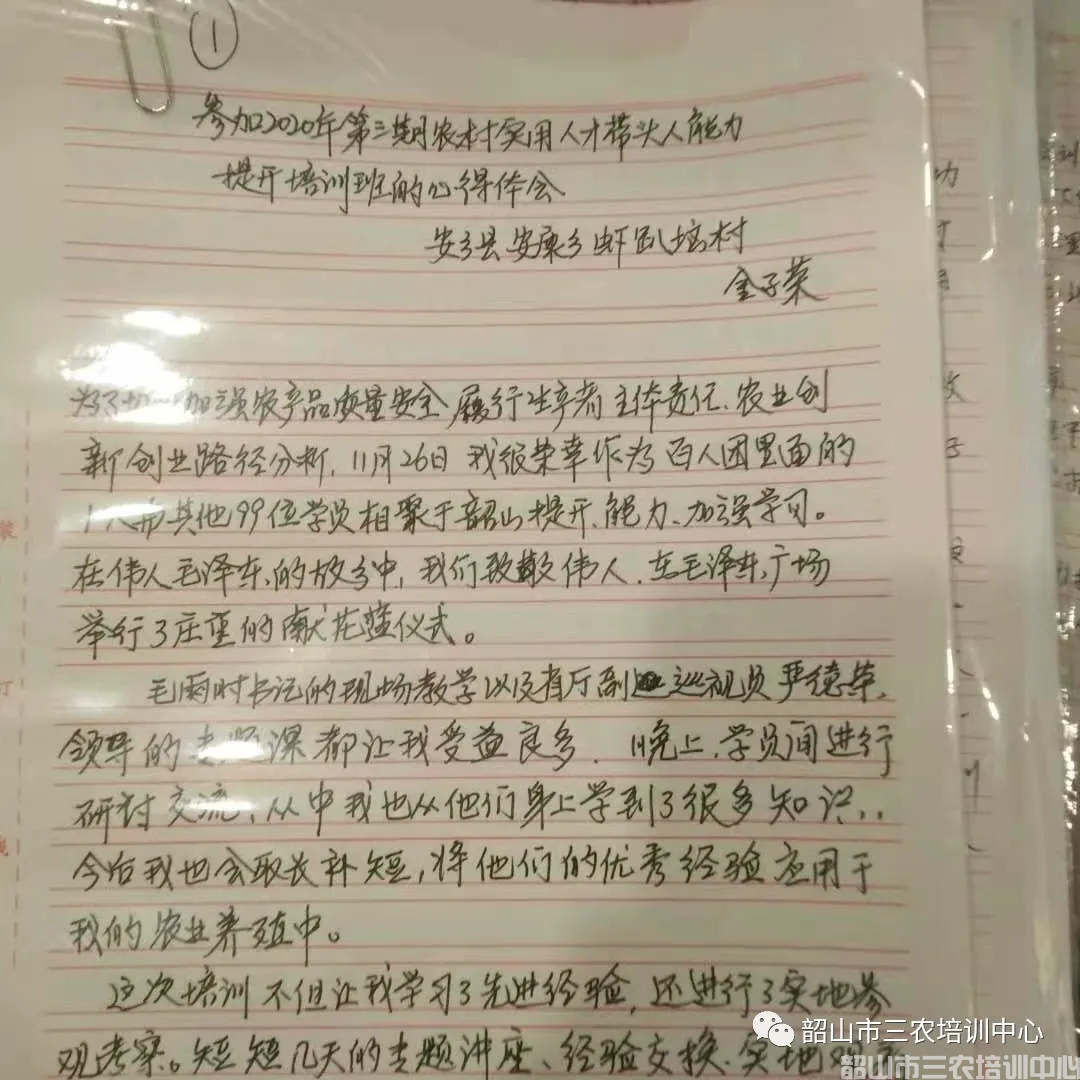 ①
参加2020年第三期农村实用人才带头人能力
提升培训班的心得体会
安乡县安康乡虾趴垴村
金子荣
为了 加强农产品质量安全 履行生产者主体责任、农业创
新创业路径分析,11月26日 我很荣幸作为百人团里面的
其他99位学员相聚于韶山提升、能力、加强学习。
在伟人毛泽东的故乡中,我们致敬伟人,在毛泽东广场
举行了庄重的献花篮仪式。
毛雨时书记的现场教学以及省厅副巡视员严德荣,
领导的专题课都让我受益良多. 晚上,学员间进行
研讨交流,从中我也从他们身上学到了很多知识,.
今后我也会取长补短,将他们的优秀经验应用于
我的农业养殖中。
这次培训不但让我学习了先进经验,还进行了实地参
观考察。短短几天的专题讲座、经验交换、实地
韶山市三农培训中心
韶山市三农培训中心